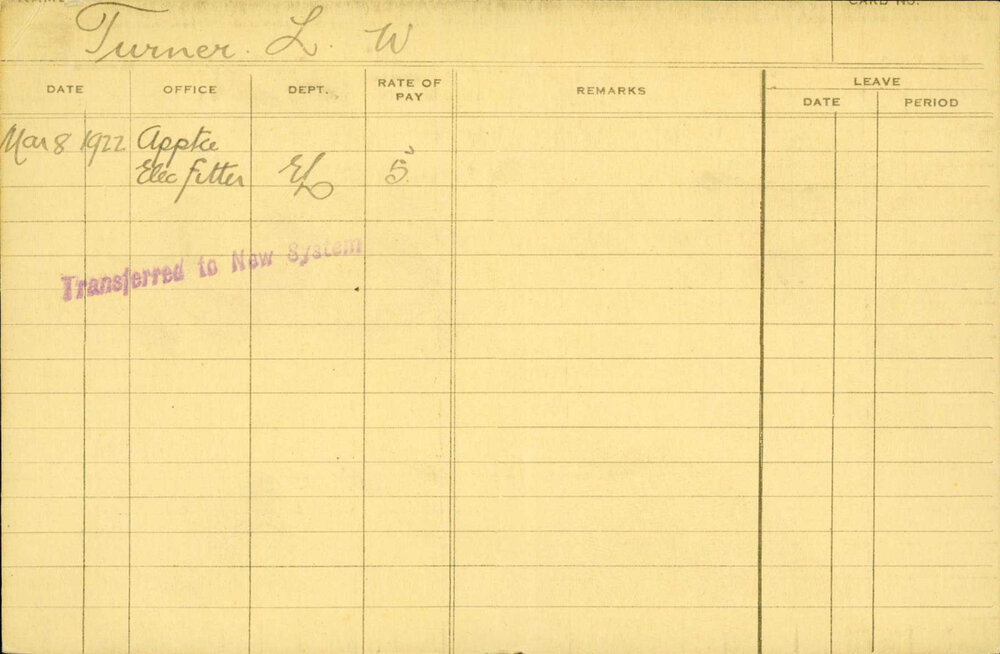 NAME CARD NO.
Turner. L. W
DATE OFFICE DEPT. RATE OF PAY REMARKS LEAVE
DATE PERIOD
Mar 8 1922 Apptce
Elec fitter EL 5
Transferred to New System